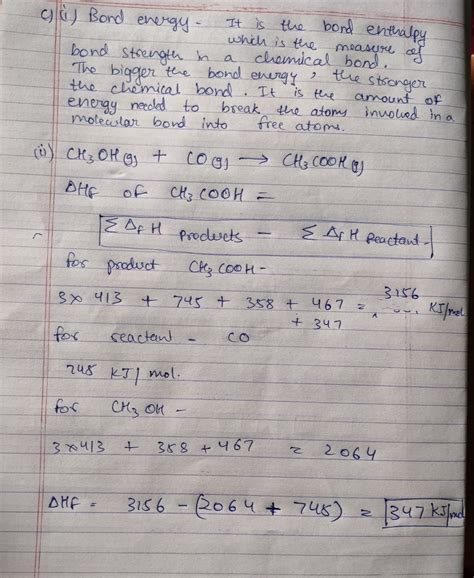 c) (i) Bond energy - It is the bond enthalpy
which is the measure of
bond strength in a chemical bond.
The bigger the bond energy, the stronger
the chemical bond. It is the amount of
energy needed to break the atoms involved in a
molecular bond into free atoms.
(ii) CH3OH(g) + CO(g) → CH3COOH(g)
ΔHf of CH3COOH =
Σ ΔfH products - Σ ΔfH Reactant -
for product CH3COOH -
3× 413 + 745 + 358 + 467 = 3156 KJ/mol
+ 347
for reactant - CO
745 KJ/mol.
for CH3OH -
3×413 + 358 + 467 = 2064
ΔHf = 3156 - (2064 + 745) = 347 KJ/mol